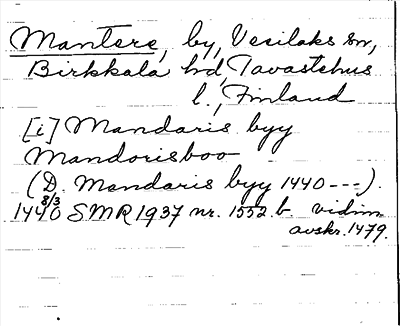 Mantere, by, Vesilaks sn,
Birkkala hd, Tavastehus
l., Finland
[i] Mandaris byy
Mandorisboo
(D. Mandaris byy 1440 ---).
1440 8/3 SMR 1937 nr. 1552 b vidim.
avskr. 1479.